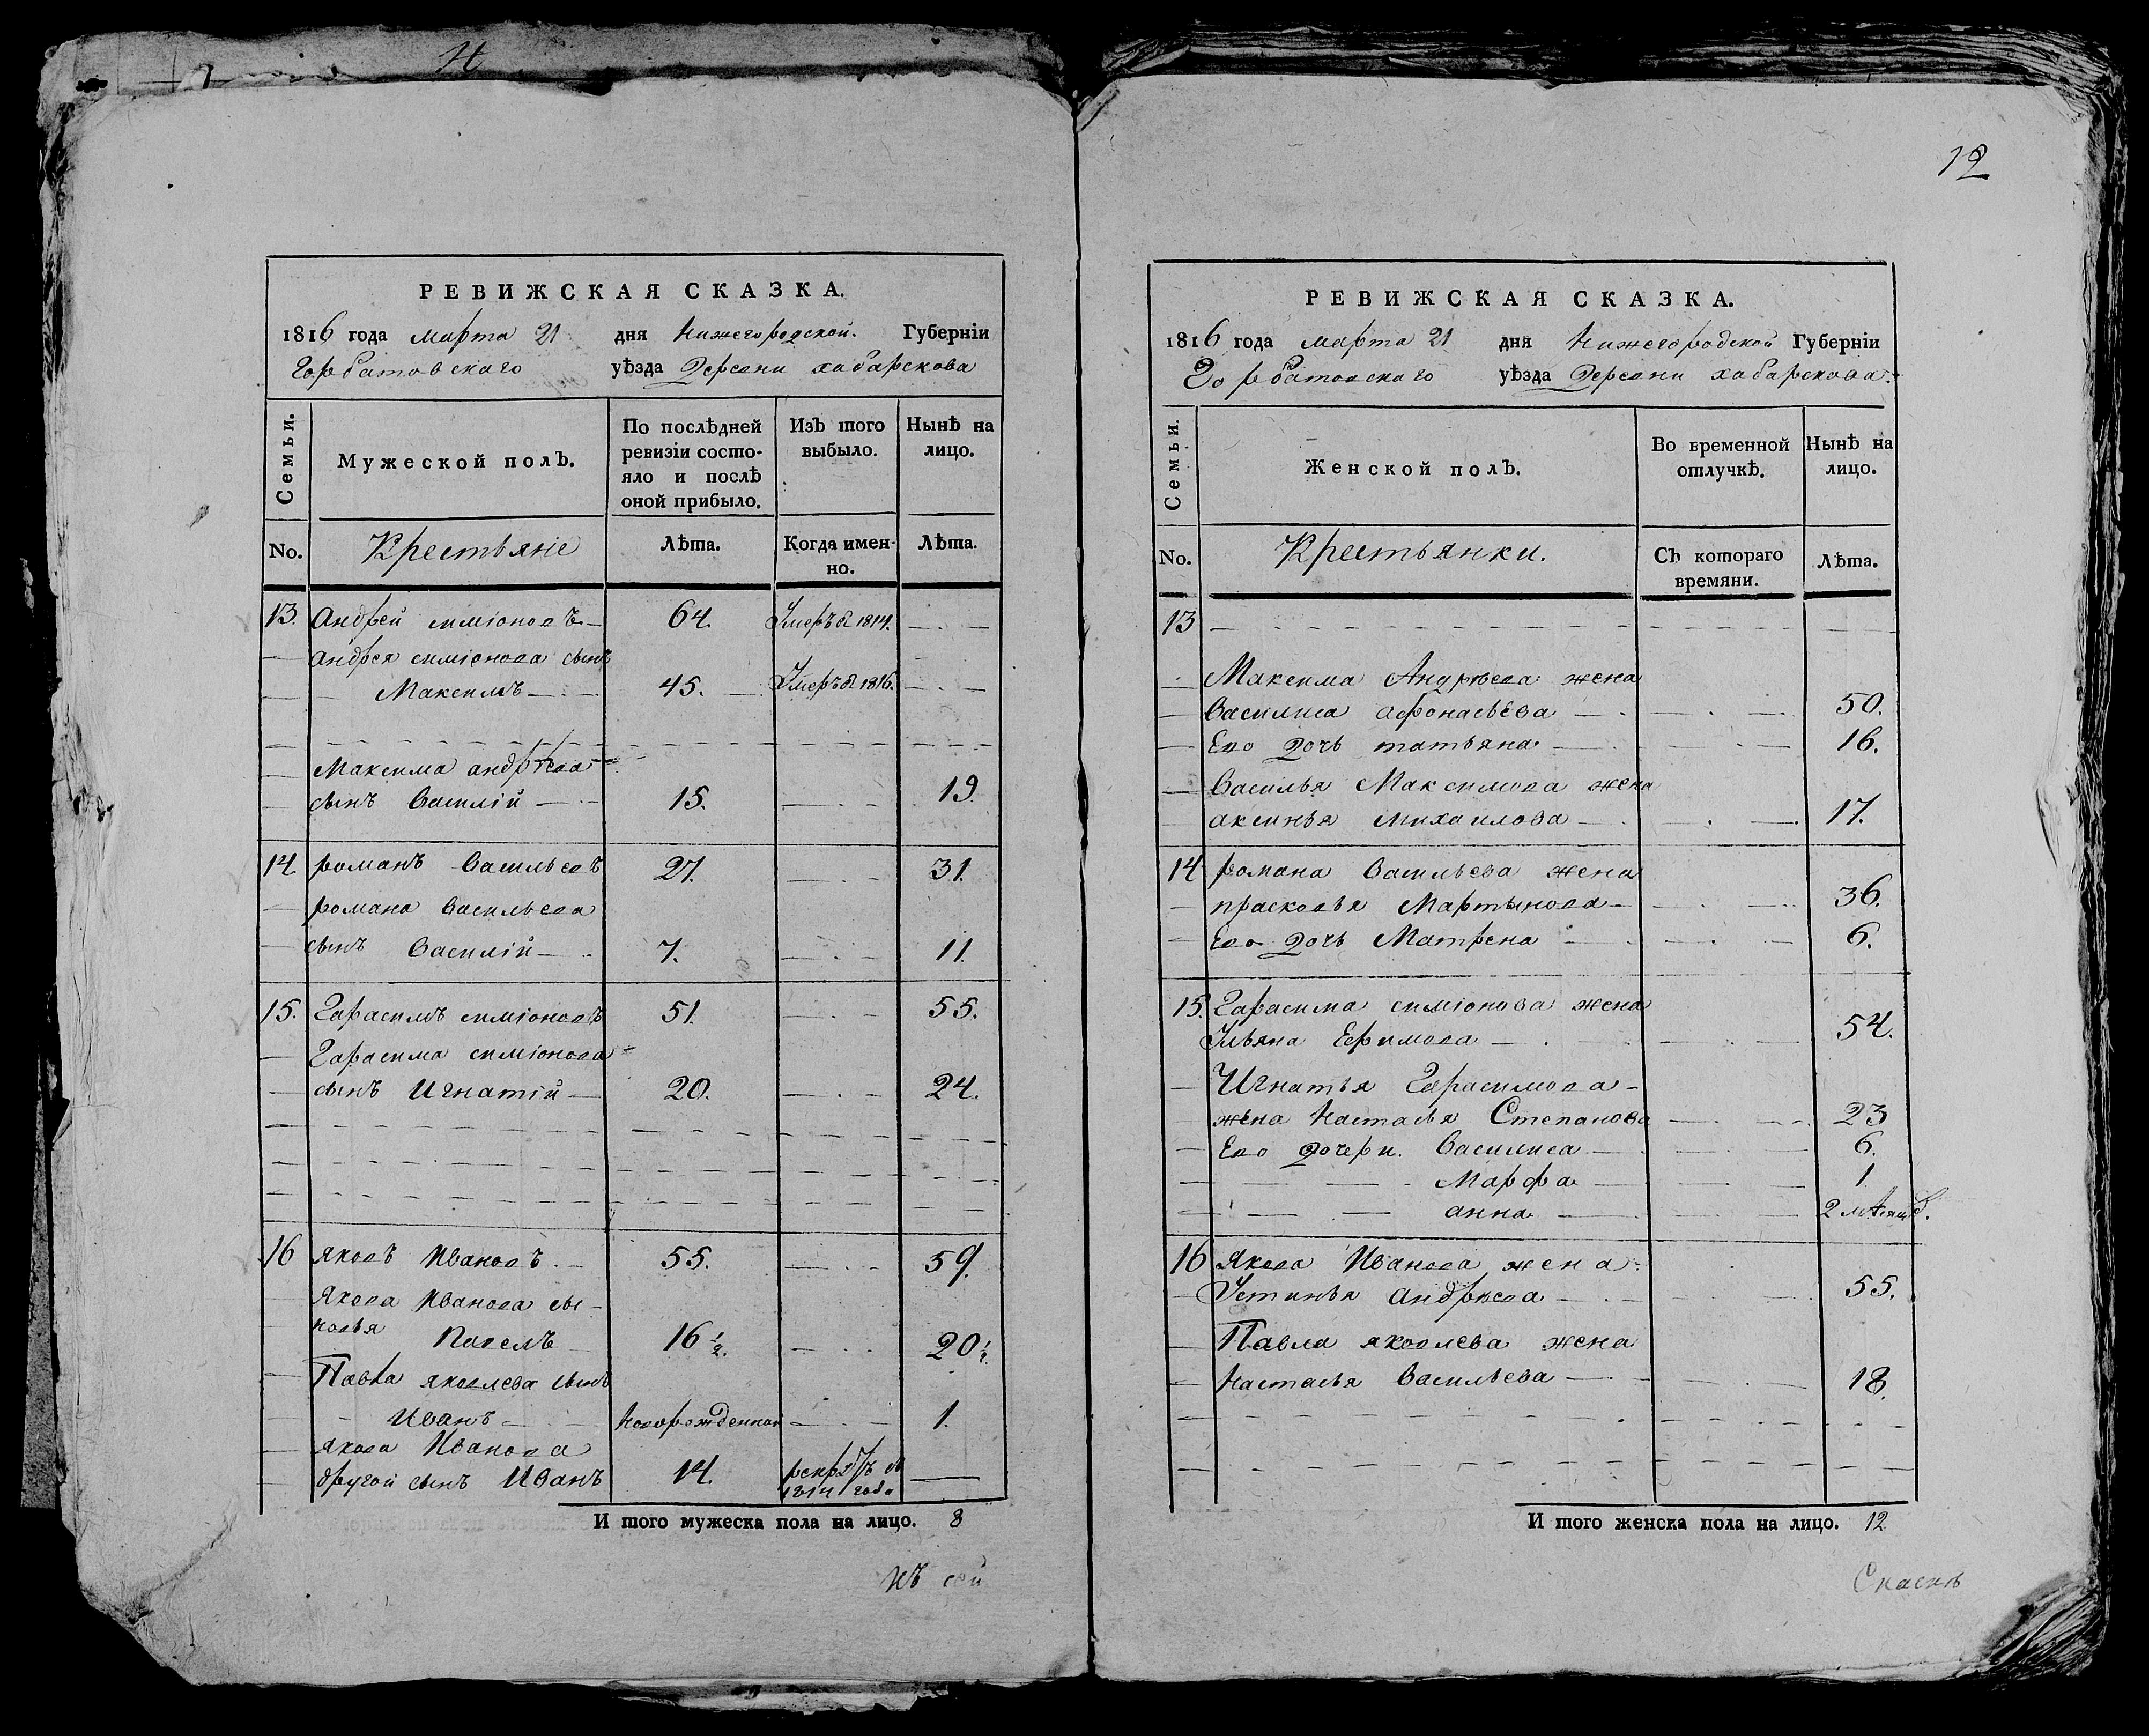 РЕВИЖСКАЯ СКАЗКА.
1816 года марта 21 дня Нижегородской Губерніи
Горбатовскаго уѣзда Деревни хабарскова
Семьи.
Мужеской полъ.
По послѣдней ревизіи состояло и послѣ оной прибыло.
Изъ того выбыло.
Нынѣ на лицо.
No. Крестьяне Лѣта. Когда именно. Лѣта.
13. Андрей симіоновъ 64. Умеръ в 1814.
Андрея симіонова сынъ
Максимъ 45. Умеръ в 1816.
Максима андрѣева
сынъ Василій 15. 19.
14 романъ Васильевъ 27. 31.
романа Васильева
сынъ Василій 7. 11.
15. Гарасимъ симіоновъ 51. 55.
Гарасима симіонова
сынъ Игнатій 20. 24.
16 яковъ Ивановъ 55. 59.
Якова Иванова сы-
новья Павелъ 16 1/2. 20 1/2.
Павла яковлева сынъ
Иванъ новорожденной 1.
якова Иванова
другой сынъ Иванъ 14. рекрутъ въ 1814 года
И того мужеска пола на лицо. 8
Къ сей
12
РЕВИЖСКАЯ СКАЗКА.
1816 года марта 21 дня Нижегородской Губерніи
Горбатовскаго уѣзда Деревни хабарскова.
Семьи.
Женской полъ.
Во временной отлучкѣ.
Нынѣ на лицо.
No. Крестьянки. Съ котораго времяни. Лѣта.
13
Максима Андрѣева жена
Василиса афонасьева 50.
Ево дочь татьяна 16.
Василья Максимова жена
аксинья михаилова 17.
14 романа Васильева жена
прасковья Мартынова 36.
Ево дочь Матрена 6.
15. Гарасима симіонова жена
Ульяна Ефимова 54.
Игнатья Гарасимова
жена Настасья Степанова 23
Ево дочери. Василиса 6.
Марфа 1
анна 2 мѣсяцъ.
16 Якова Иванова жена
Устинья андрѣева 55.
Павла яковлева жена
Настасья Васильева 18.
И того женска пола на лицо. 12
Скаске